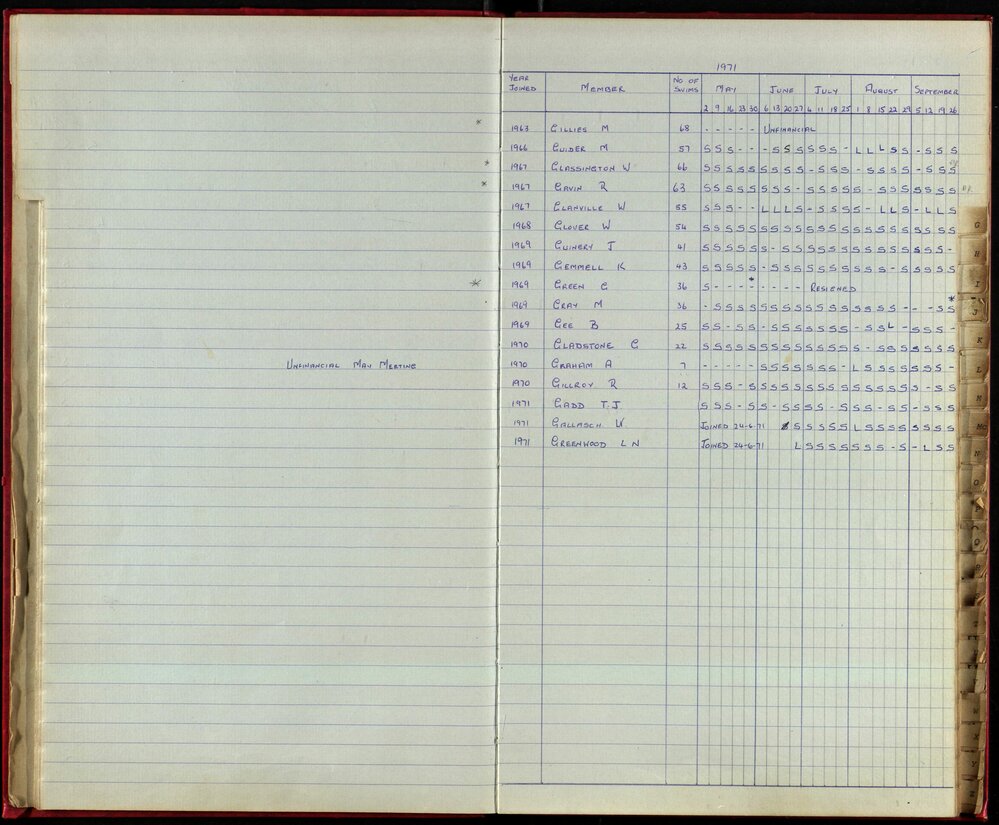 1971
YEAR JOINED MEMBER NO OF SWIMS MAY JUNE JULY AUGUST SEPTEMBER
2 9 16 23 30 6 13 20 27 4 11 18 25 1 8 15 22 29 5 12 19 26
* 1963 GILLIES M 68 - - - - - UNFINANCIAL
1966 GUIDER M 57 S S S - - - S S S S S S - L L L S S - S S S
* 1967 GLASSINGTON W 66 S S S S S S S S S - S S S - S S S S - S S S
* 1967 GAVIN R 63 S S S S S S S S - S S S S S - S S S S S S S
1967 GLANVILLE W 55 S S S - - L L L S - S S S S - L L S - L L S
1968 GLOVER W 54 S S S S S S S S S S S S S S S S S S S S S S
1969 GUINERY J 41 S S S S S S - S S S S S S S S S S S S S S -
1969 GEMMELL K 43 S S S S S - S S S S S S S S S S - S S S S S
* 1969 GREEN G 36 S - - - * - - - - - RESIGNED
1969 GRAY M 36 - S S S S S S S S S S S S S S S S S - - S S *
1969 GEE B 25 S S - S S - S S S S S S S - S S L - S S S -
1970 GLADSTONE G 22 S S S S S S S S S S S S S S - S S S S S S S
UNFINANCIAL MAY MEETING 1970 GRAHAM A 7 - - - - - S S S S S S S - L S S S S S S S -
1970 GILLROY R 12 S S S - S S S S S S S S S S S S S S S - S S
1971 GADD T.J S S S - S S - S S S S - S S S - S S - S S S
1971 GALLASCH W. JOINED 24-6-71 S S S S S L S S S S S S S S
1971 GREENWOOD L N JOINED 24-6-71 L S S S S S S S - S - L S S
G
H
I
J
K
L
M
Mc
N
O
Q
W
X
Y
Z